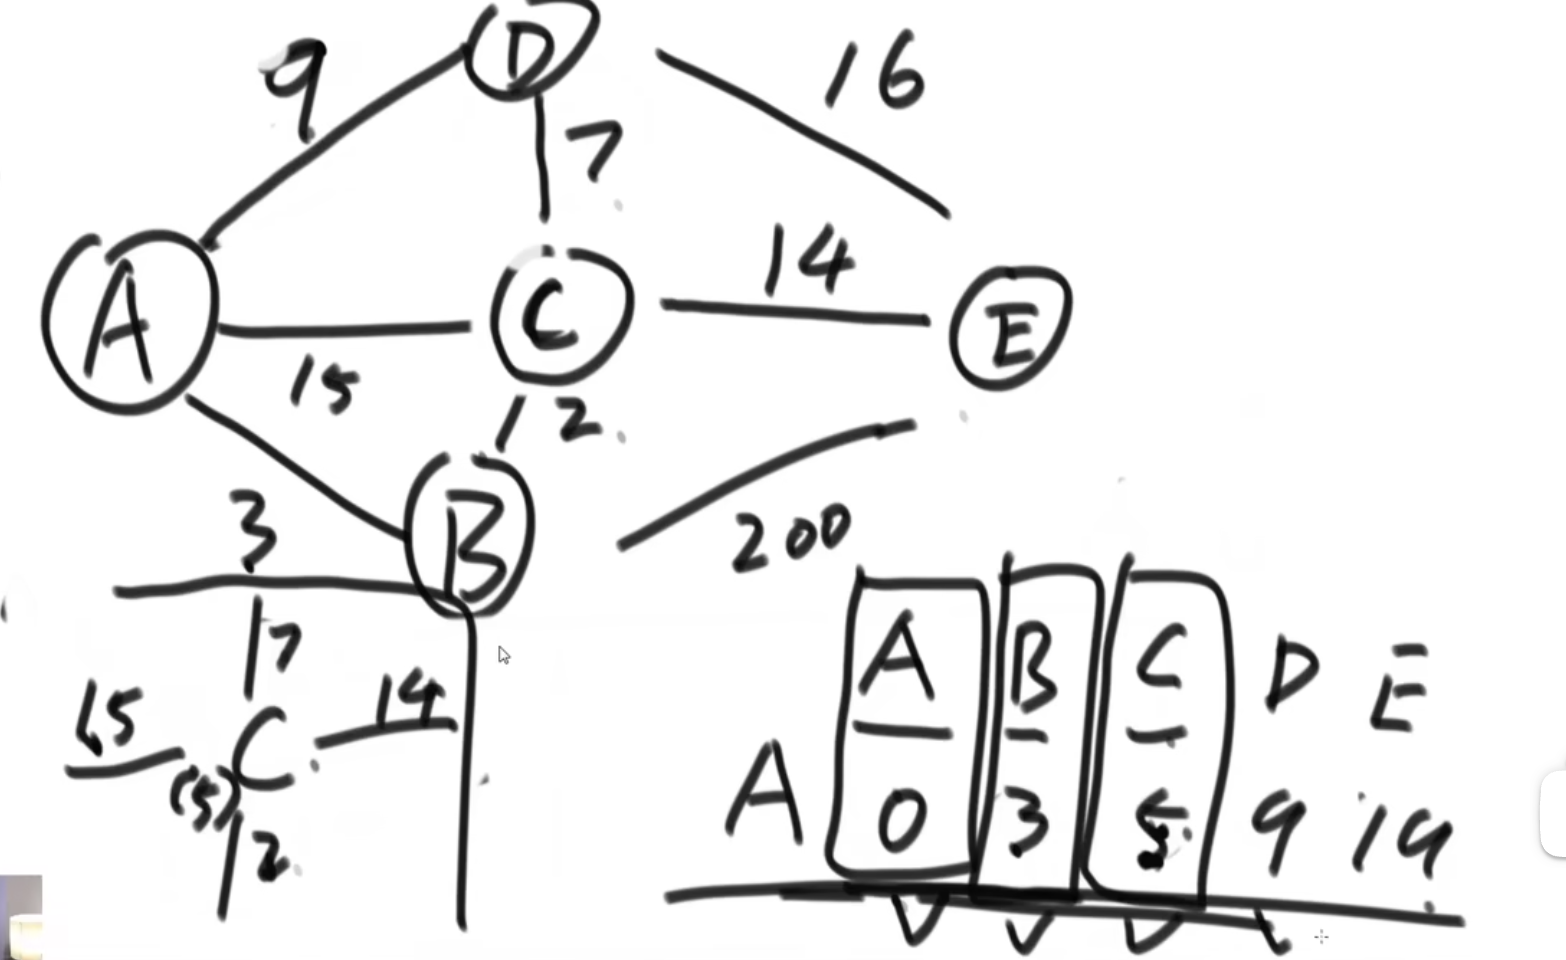 D
9
16
7
A
C
14
E
15
2
3
B
200
7
15
C
14
(5)
2
A B C D E
A 0 3 5 9 19